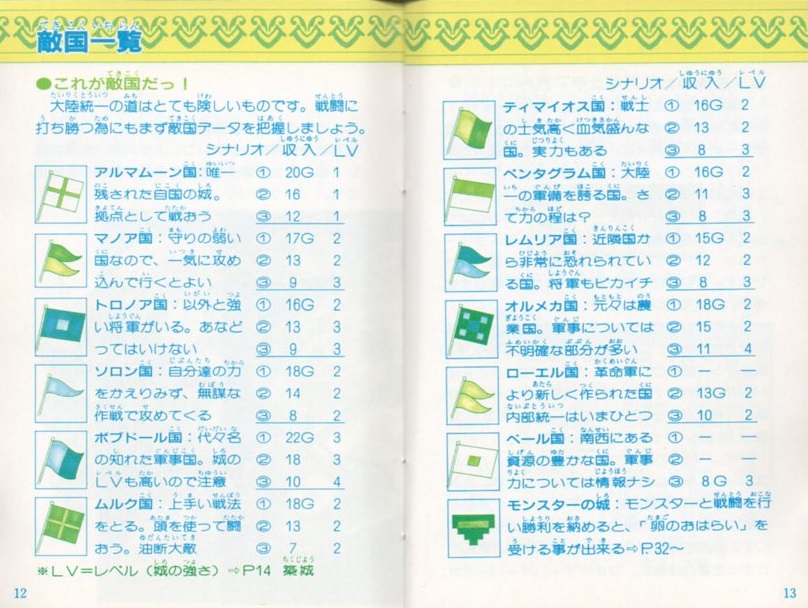 敵国一覧
●これが敵国だっ!
大陸統一の道はとても険しいものです。戦闘に
打ち勝つ為にもまず敵国データを把握しましょう。
シナリオ/収入/LV
アルマムーン国:唯一 ① 20G 1
残された自国の城。 ② 16 1
拠点として戦おう ③ 12 1
マノア国:守りの弱い ① 17G 2
国なので、一気に攻め ② 13 2
込んで行くとよい ③ 9 3
トロノア国:以外と強 ① 16G 2
い将軍がいる。あなど ② 13 3
ってはいけない ③ 9 3
ソロン国:自分達の力 ① 18G 2
をかえりみず、無謀な ② 14 2
作戦で攻めてくる ③ 8 2
ボブドール国:代々名 ① 22G 3
の知れた軍事国。城の ② 18 3
LVも高いので注意 ③ 10 4
ムルク国:上手い戦法 ① 18G 2
をとる。頭を使って闘 ② 13 2
おう。油断大敵 ③ 7 2
※LV=レベル(城の強さ)⇨P14 築城
12
シナリオ/収入/LV
ティマイオス国:戦士 ① 16G 2
の士気高く血気盛んな ② 13 2
国。実力もある ③ 8 3
ペンタグラム国:大陸 ① 16G 2
一の軍備を誇る国。さ ② 11 3
て力の程は? ③ 8 3
レムリア国:近隣国か ① 15G 2
ら非常に恐れられてい ② 12 2
る国。将軍もピカイチ ③ 8 3
オルメカ国:元々は農 ① 18G 2
業国。軍事については ② 15 2
不明確な部分が多い ③ 11 4
ローエル国:革命軍に ① ー ー
より新しく作られた国 ② 13G 2
内部統一はいまひとつ ③ 10 2
ベール国:南西にある ① ー ー
資源の豊かな国。軍事 ② ー ー
力については情報ナシ ③ 8G 3
モンスターの城:モンスターと戦闘を行
い勝利を納めると、「卵のおはらい」を
受ける事が出来る⇨P32〜
13